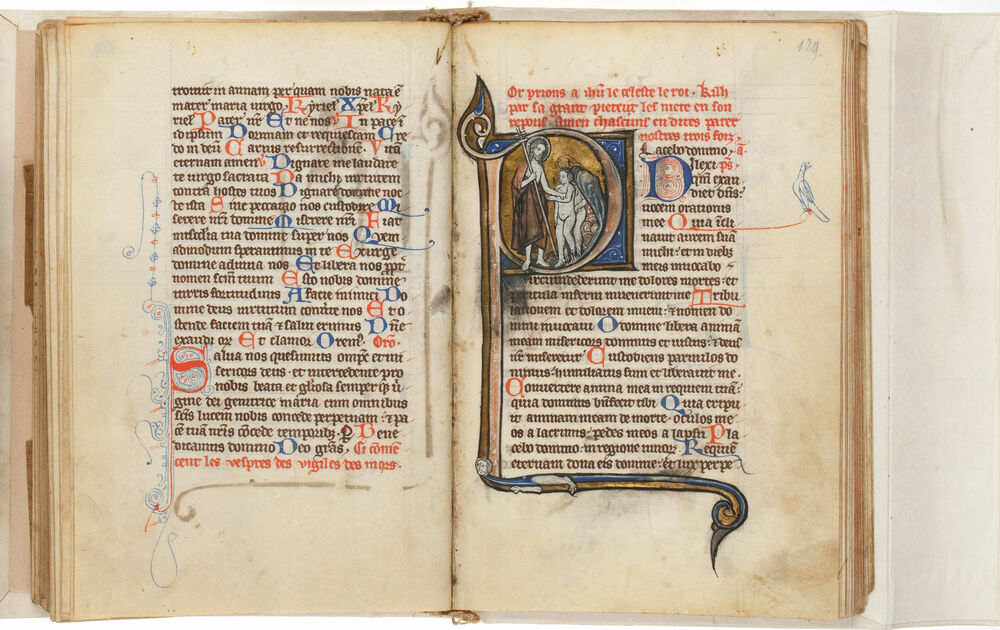 trovit in annam per quam nobis nata ē
mater maria virgo. Kyriel. Xpel. Ky
riel. Pater nr̄. Et ne nos. In pace ī
idipsum. Dormiam et requiescam. Cre
do in deū. Carnis resurrectionē. Vitā
eternam amen. Dignare me laudare
te virgo sacrata. Da michi virtutem
contra hostes tuos. Dignare domine noc
te ista. Sine peccato nos custodire. Mi
serere nr̄i domine. Miserere nr̄i. Fiat
misc̄dia tua domine super nos. Quem
admodum speravimus in te. Exurge
domine adiuva nos. Et libera nos ꝓpt̄
nomen scm̄ tuum. Esto nobis domine
turris fortitudinis. A facie inimici. Do
mine deus virtutum converte nos. Et o
stende faciem tuā et salvi erimus. Dn̄e
exaudi or̄. Et clamor. Orem̄. Orō.
Salva nos quesumus omp̄s et mi
sericors deus. et intercedente pro
nobis beata et glīosa semper qꝫ v̄
gine dei genitrice maria cum omnibus
scīs lucem nobis concede perpetuam. et pa
cē tuā nr̄is cōcede temporibꝫ. Bene
dicamus domino. Deo gr̄as. Ci cōmen
cent les vespres des vigiles des mors.
129.
Or prions a ihū le celeste le rot. Kilh
par sa grant pieteit les mete en son
repons. Amen chascuns en dites pater
nostres trois foiz.
Placebo domino. ā.
Dilexi ps̄.
qm̄ exau
diet dn̄s.
vocem orationis
mee. Quia īcli
navit aurem suā
michi. et in dieb
meis invocabo.
Circumdederunt me dolores mortis. et
pericula inferni invenerunt me. Tribu
lationem et dolorem inveni. et nomen do
mini invocavi. O domine libera animā
meam misericors dominus et iustus. et deus
nr̄ miseretur. Custodiens parvulos do
minus. humiliatus sum et liberavit me.
Convertere anima mea in requiem tuā.
quia dominus bn̄fecit tibi. Quia eripu
it animam meam de morte. oculos me
os a lacrimis. pedes meos a lapsu. Pla
cebo domino. in regione vivor. Requiē
eternam dona eis domine. Et lux perpe